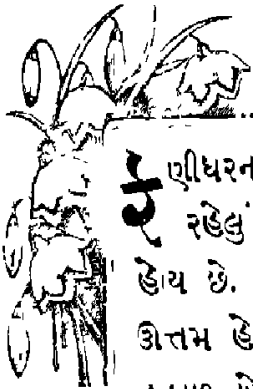 ફણીધરન
રહેલું
હોય છે.
ઊત્તમ હે